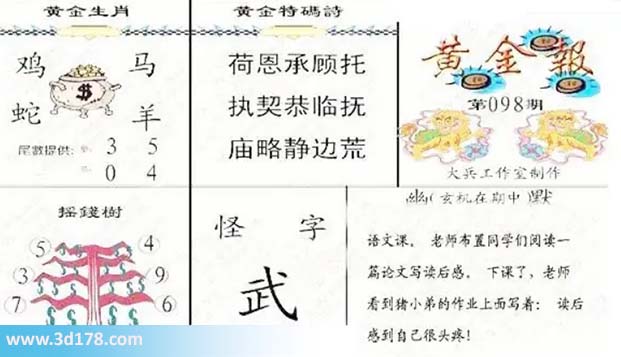 黄金生肖
鸡 马
蛇 羊
尾數提供: 3 5
0 4
黄金特碼詩
荷恩承顾托
执契恭临抚
庙略静边荒
黄金報
第098期
大兵工作室制作
摇錢樹
5 4
3 9
7 6
怪 字
武
幽(玄机在期中)默
语文课， 老师布置同学们阅读一
篇论文写读后感， 下课了，老师
看到猪小弟的作业上面写着： 读后
感到自己很头疼！
www.3d178.com